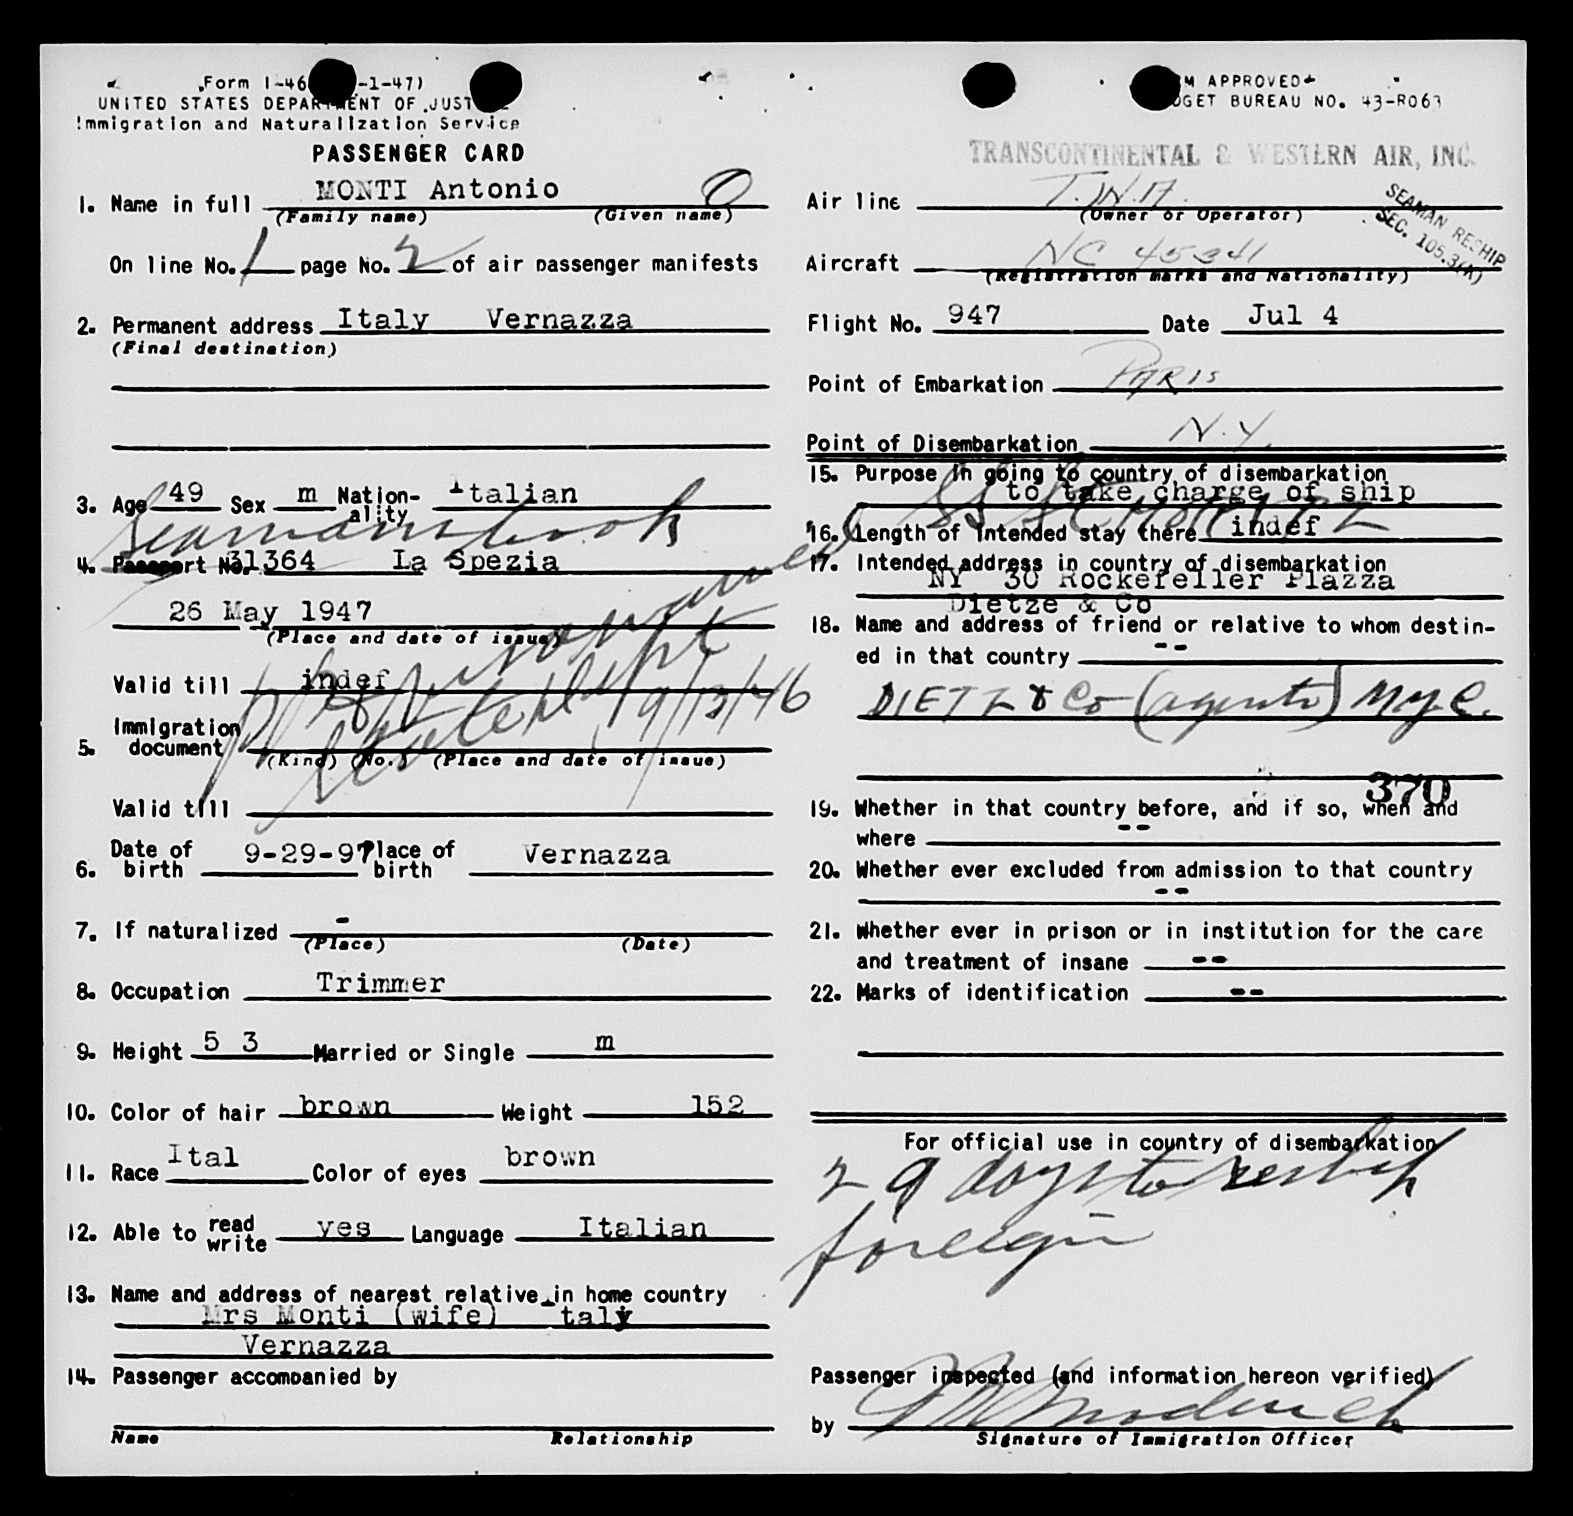 Form I-46 -1-47)
UNITED STATES DEPARTMENT OF JUSTICE
Immigration and Naturalization Service
PASSENGER CARD
1. Name in full MONTI Antonio O
(Family name) (Given name)
On line No. 1 page No. 2 of air passenger manifests
2. Permanent address Italy Vernazza
(Final destination)
3. Age 49 Sex m Nation-ality Italian
Seamans book
4. Passport No. 31364 La Spezia
26 May 1947
(Place and date of issue)
Valid till indef
9/13/46
5. Immigration document
(Kind) (No.) (Place and date of issue)
Valid till
6. Date of birth 9-29-97 Place of birth Vernazza
7. If naturalized -
(Place) (Date)
8. Occupation Trimmer
9. Height 5 3 Married or Single m
10. Color of hair brown Weight 152
11. Race Ital Color of eyes brown
12. Able to read write yes Language Italian
13. Name and address of nearest relative in home country
Mrs Monti (wife) Italy
Vernazza
14. Passenger accompanied by
Name Relationship
FORM APPROVED
BUDGET BUREAU NO. 43-R063
TRANSCONTINENTAL & WESTERN AIR, INC.
Air line T.W.A.
(Owner or Operator)
SEAMAN RESHIP
SEC. 105.3(A)
Aircraft NC 45341
(Registration marks and Nationality)
Flight No. 947 Date Jul 4
Point of Embarkation PARIS
Point of Disembarkation N.Y.
15. Purpose in going to country of disembarkation
to take charge of ship
SS
16. Length of intended stay there indef
17. Intended address in country of disembarkation
NY 30 Rockefeller Plazza
Dietze & Co
18. Name and address of friend or relative to whom destin-
ed in that country --
DIETZ & Co (agents) N.Y.C.
370
19. Whether in that country before, and if so, when and
where --
20. Whether ever excluded from admission to that country
--
21. Whether ever in prison or in institution for the care
and treatment of insane --
22. Marks of identification --
For official use in country of disembarkation
29 days to reship
foreign
Passenger inspected (and information hereon verified)
by
Signature of Immigration Officer